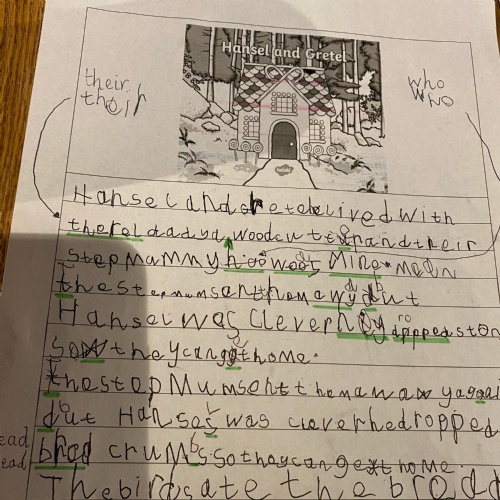 Hansel and Gretel
their
their
who
who
Hansel and Gretel lived with
therel dad a wood cuter and their
step mummy hoo woos Mine. Mean
the step mum sant them awy dut
Hansel was clever hey dropped ston
so they can get home.
the step Mum sent them away agai
but Hansel was clever he dropped
ead
ead
bhed crumbs so they can get home.
The birds ate the brode